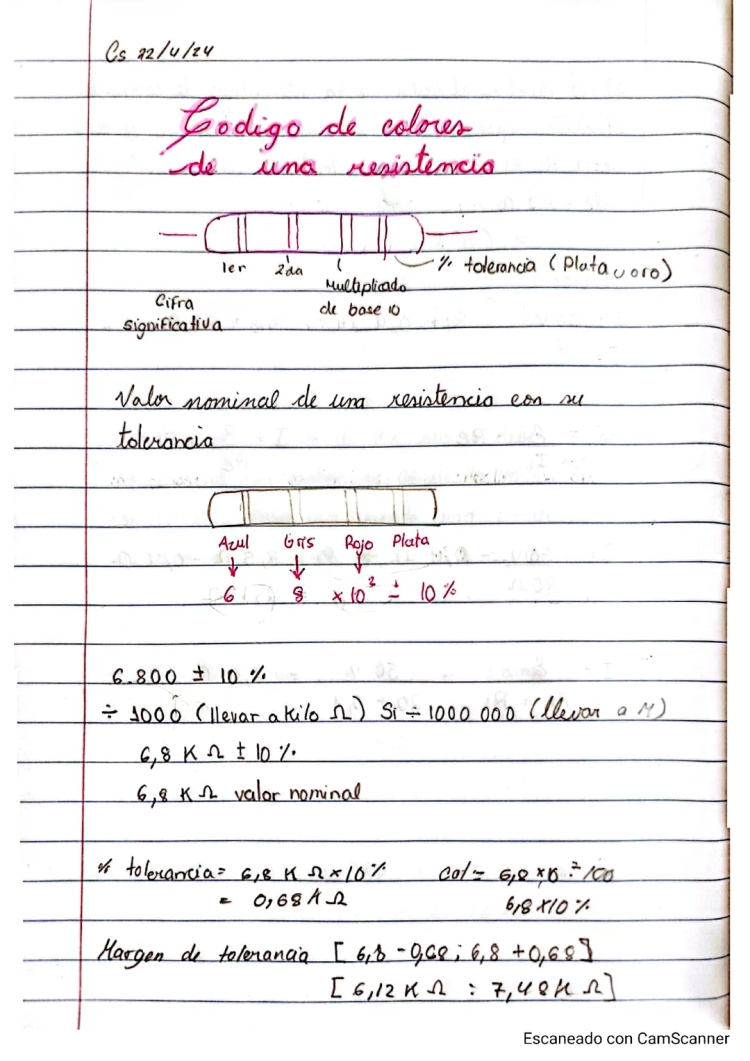 Cs 22/4/24
Codigo de colores
de una resistencia
1er 2da % tolerancia (Plata u oro)
Multiplicado
de base 10
Cifra
significativa
Valor nominal de una resistencia con su
tolerancia
Azul Gris Rojo Plata
6 8 x10³ ± 10%
6.800 ± 10 %
÷ 1000 (llevar a kilo Ω) Si ÷ 1000 000 (llevar a M)
6,8 K Ω ± 10 %
6,8 K Ω valor nominal
% tolerancia = 6,8 K Ω x 10%
= 0,68 K Ω
6,8 x 10 %
Margen de tolerancia [6,8 - 0,68 ; 6,8 + 0,68]
[6,12 K Ω : 7,48 K Ω]
Escaneado con CamScanner